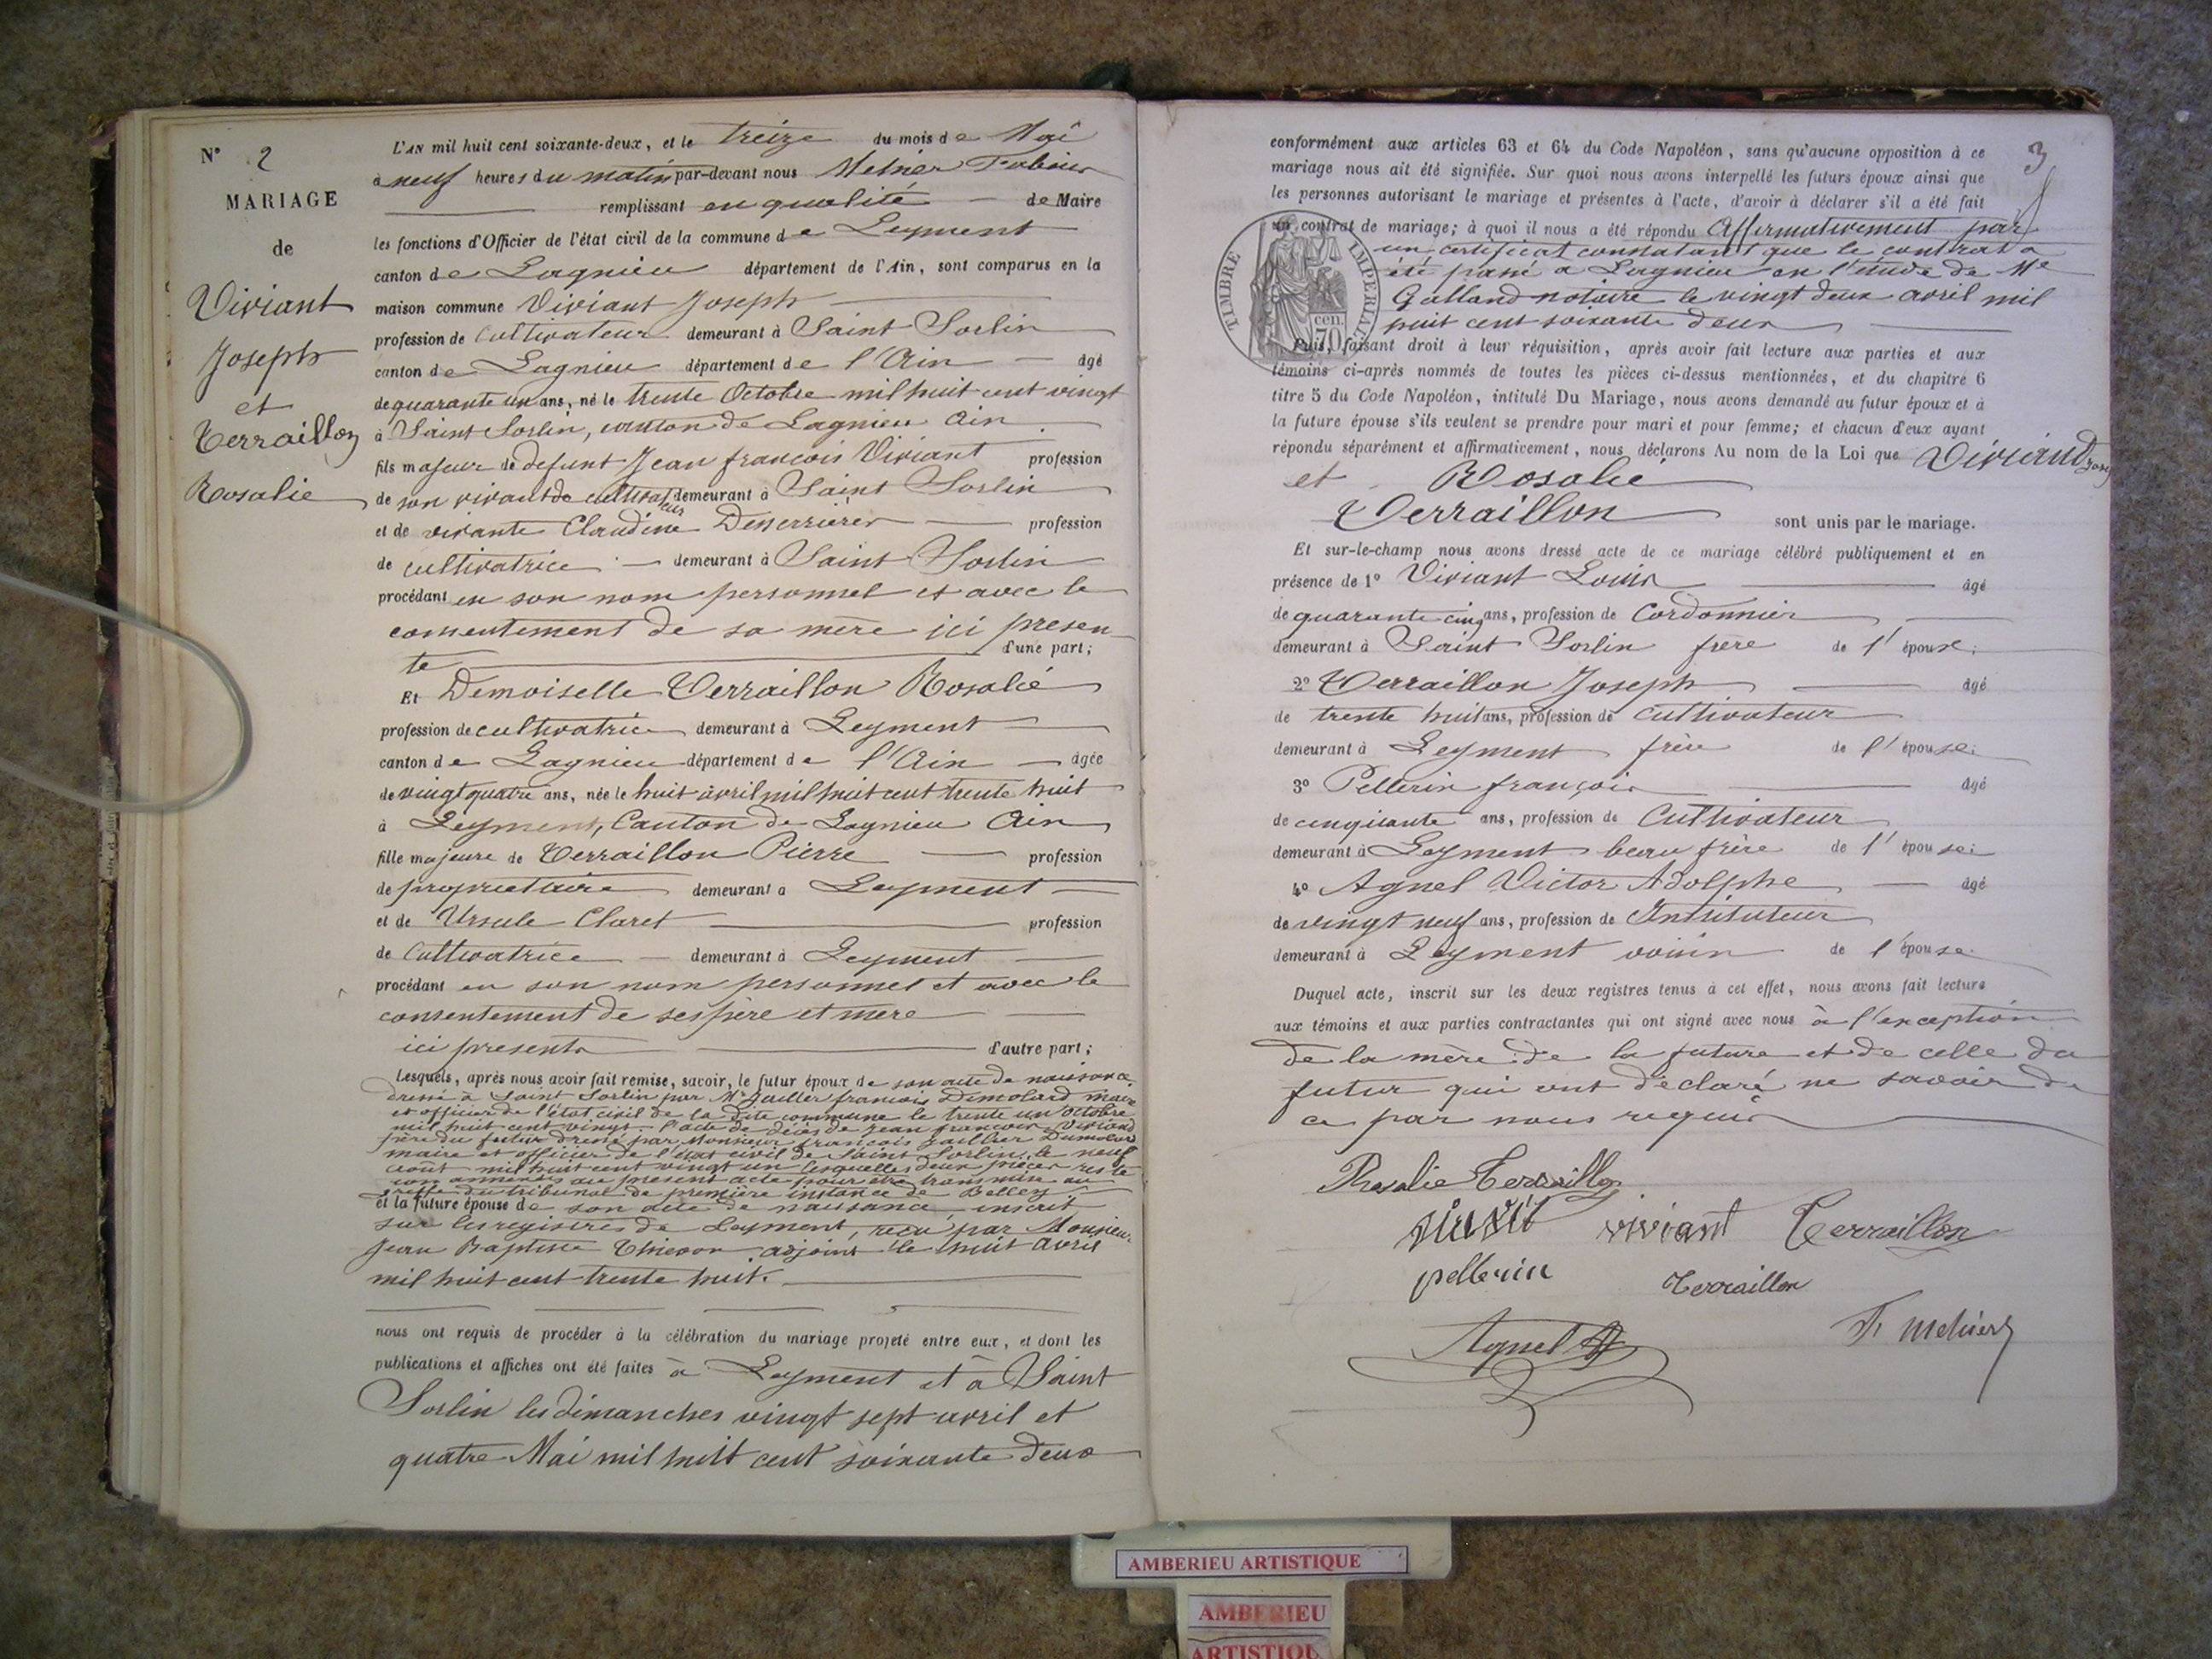 N° 2
MARIAGE
de
Viviant
Joseph
et
Terraillon
Rosalie
L'AN mil huit cent soixante-deux, et le treize du mois de Mai
à neuf heures du matin par-devant nous
remplissant en qualité de Maire
les fonctions d'Officier de l'état civil de la commune de Leyment
canton de Lagnieu département de l'Ain, sont comparus en la
maison commune Viviant Joseph
profession de Cultivateur demeurant à Saint Sorlin
canton de Lagnieu département de l'Ain âgé
de quarante un ans, né le trente Octobre mil huit cent vingt
à Saint Sorlin, canton de Lagnieu Ain
fils majeur de defunt Jean françois Viviant profession
de son vivant de cultivateur demeurant à Saint Sorlin
et de vivante Claudine profession
de cultivatrice demeurant à Saint Sorlin
procédant en son nom personnel et avec le
consentement de sa mère ici présen
te d'une part;
Et Demoiselle Terraillon Rosalie
profession de cultivatrice demeurant à Leyment
canton de Lagnieu département de l'Ain âgée
de vingt quatre ans, née le huit avril mil huit cent trente huit
à Leyment, Canton de Lagnieu Ain
fille majeure de Terraillon Pierre profession
de propriétaire demeurant à Leyment
et de Ursule Claret profession
de Cultivatrice demeurant à Leyment
procédant en son nom personnel et avec le
consentement de ses père et mère
ici présents d'autre part;
Lesquels, après nous avoir fait remise, savoir, le futur époux de son acte de naissance
dressé à Saint Sorlin par Mr françois Dumolard maire
et officier de l'état civil de la dite commune le trente un Octobre
mil huit cent vingt. l'acte de décès de Jean françois Viviand
père du futur dressé par Monsieur françois Dumolard
maire et officier de l'état civil de Saint Sorlin, le neuf
août mil huit cent vingt un lesquelles deux pièces reste
ron annexées au présent acte pour être transmise au
greffe du tribunal de première instance de Belley
et la future épouse de son acte de naissance, inscrit
sur les registres de Leyment, reçu par Monsieur
Jean Baptiste adjoint le huit avril
mil huit cent trente huit.
nous ont requis de procéder à la célébration du mariage projeté entre eux, et dont les
publications et affiches ont été faites à Leyment et à Saint
Sorlin les dimanches vingt sept avril et
quatre Mai mil huit cent soixante deux
3
conformément aux articles 63 et 64 du Code Napoléon, sans qu'aucune opposition à ce
mariage nous ait été signifiée. Sur quoi nous avons interpellé les futurs époux ainsi que
les personnes autorisant le mariage et présentes à l'acte, d'avoir à déclarer s'il a été fait
un contrat de mariage; à quoi il nous a été répondu Affirmativement par
un certificat constatant que le contrat a
été passé à Lagnieu en l'étude de Me
Galland notaire le vingt deux avril mil
huit cent soixante deux
TIMBRE IMPERIAL
70 cen.
Puis, faisant droit à leur réquisition, après avoir fait lecture aux parties et aux
témoins ci-après nommés de toutes les pièces ci-dessus mentionnées, et du chapitre 6
titre 5 du Code Napoléon, intitulé Du Mariage, nous avons demandé au futur époux et à
la future épouse s'ils veulent se prendre pour mari et pour femme; et chacun d'eux ayant
répondu séparément et affirmativement, nous déclarons Au nom de la Loi que Viviand
et Rosalie
Terraillon sont unis par le mariage.
Et sur-le-champ nous avons dressé acte de ce mariage célébré publiquement et en
présence de 1° Viviant Louis âgé
de quarante cinq ans, profession de Cordonnier
demeurant à Saint Sorlin frère de l'épouse;
2° Terraillon Joseph âgé
de trente huit ans, profession de cultivateur
demeurant à Leyment frère de l'épouse;
3° Pellerin françois âgé
de cinquante ans, profession de Cultivateur
demeurant à Leyment beau frère de l'épouse;
4° Agnel Victor Adolphe âgé
de vingt neuf ans, profession de Instituteur
demeurant à Leyment voisin de l'épouse.
Duquel acte, inscrit sur les deux registres tenus à cet effet, nous avons fait lecture
aux témoins et aux parties contractantes qui ont signé avec nous à l'exception
de la mère de la future et de celle du
futur qui ont déclaré ne savoir de
ce par nous requis
Rosalie Terraillon
viviant Terraillon
pellerin Terraillon
Agnel
AMBERIEU ARTISTIQUE
AMBERIEU
ARTISTIQU